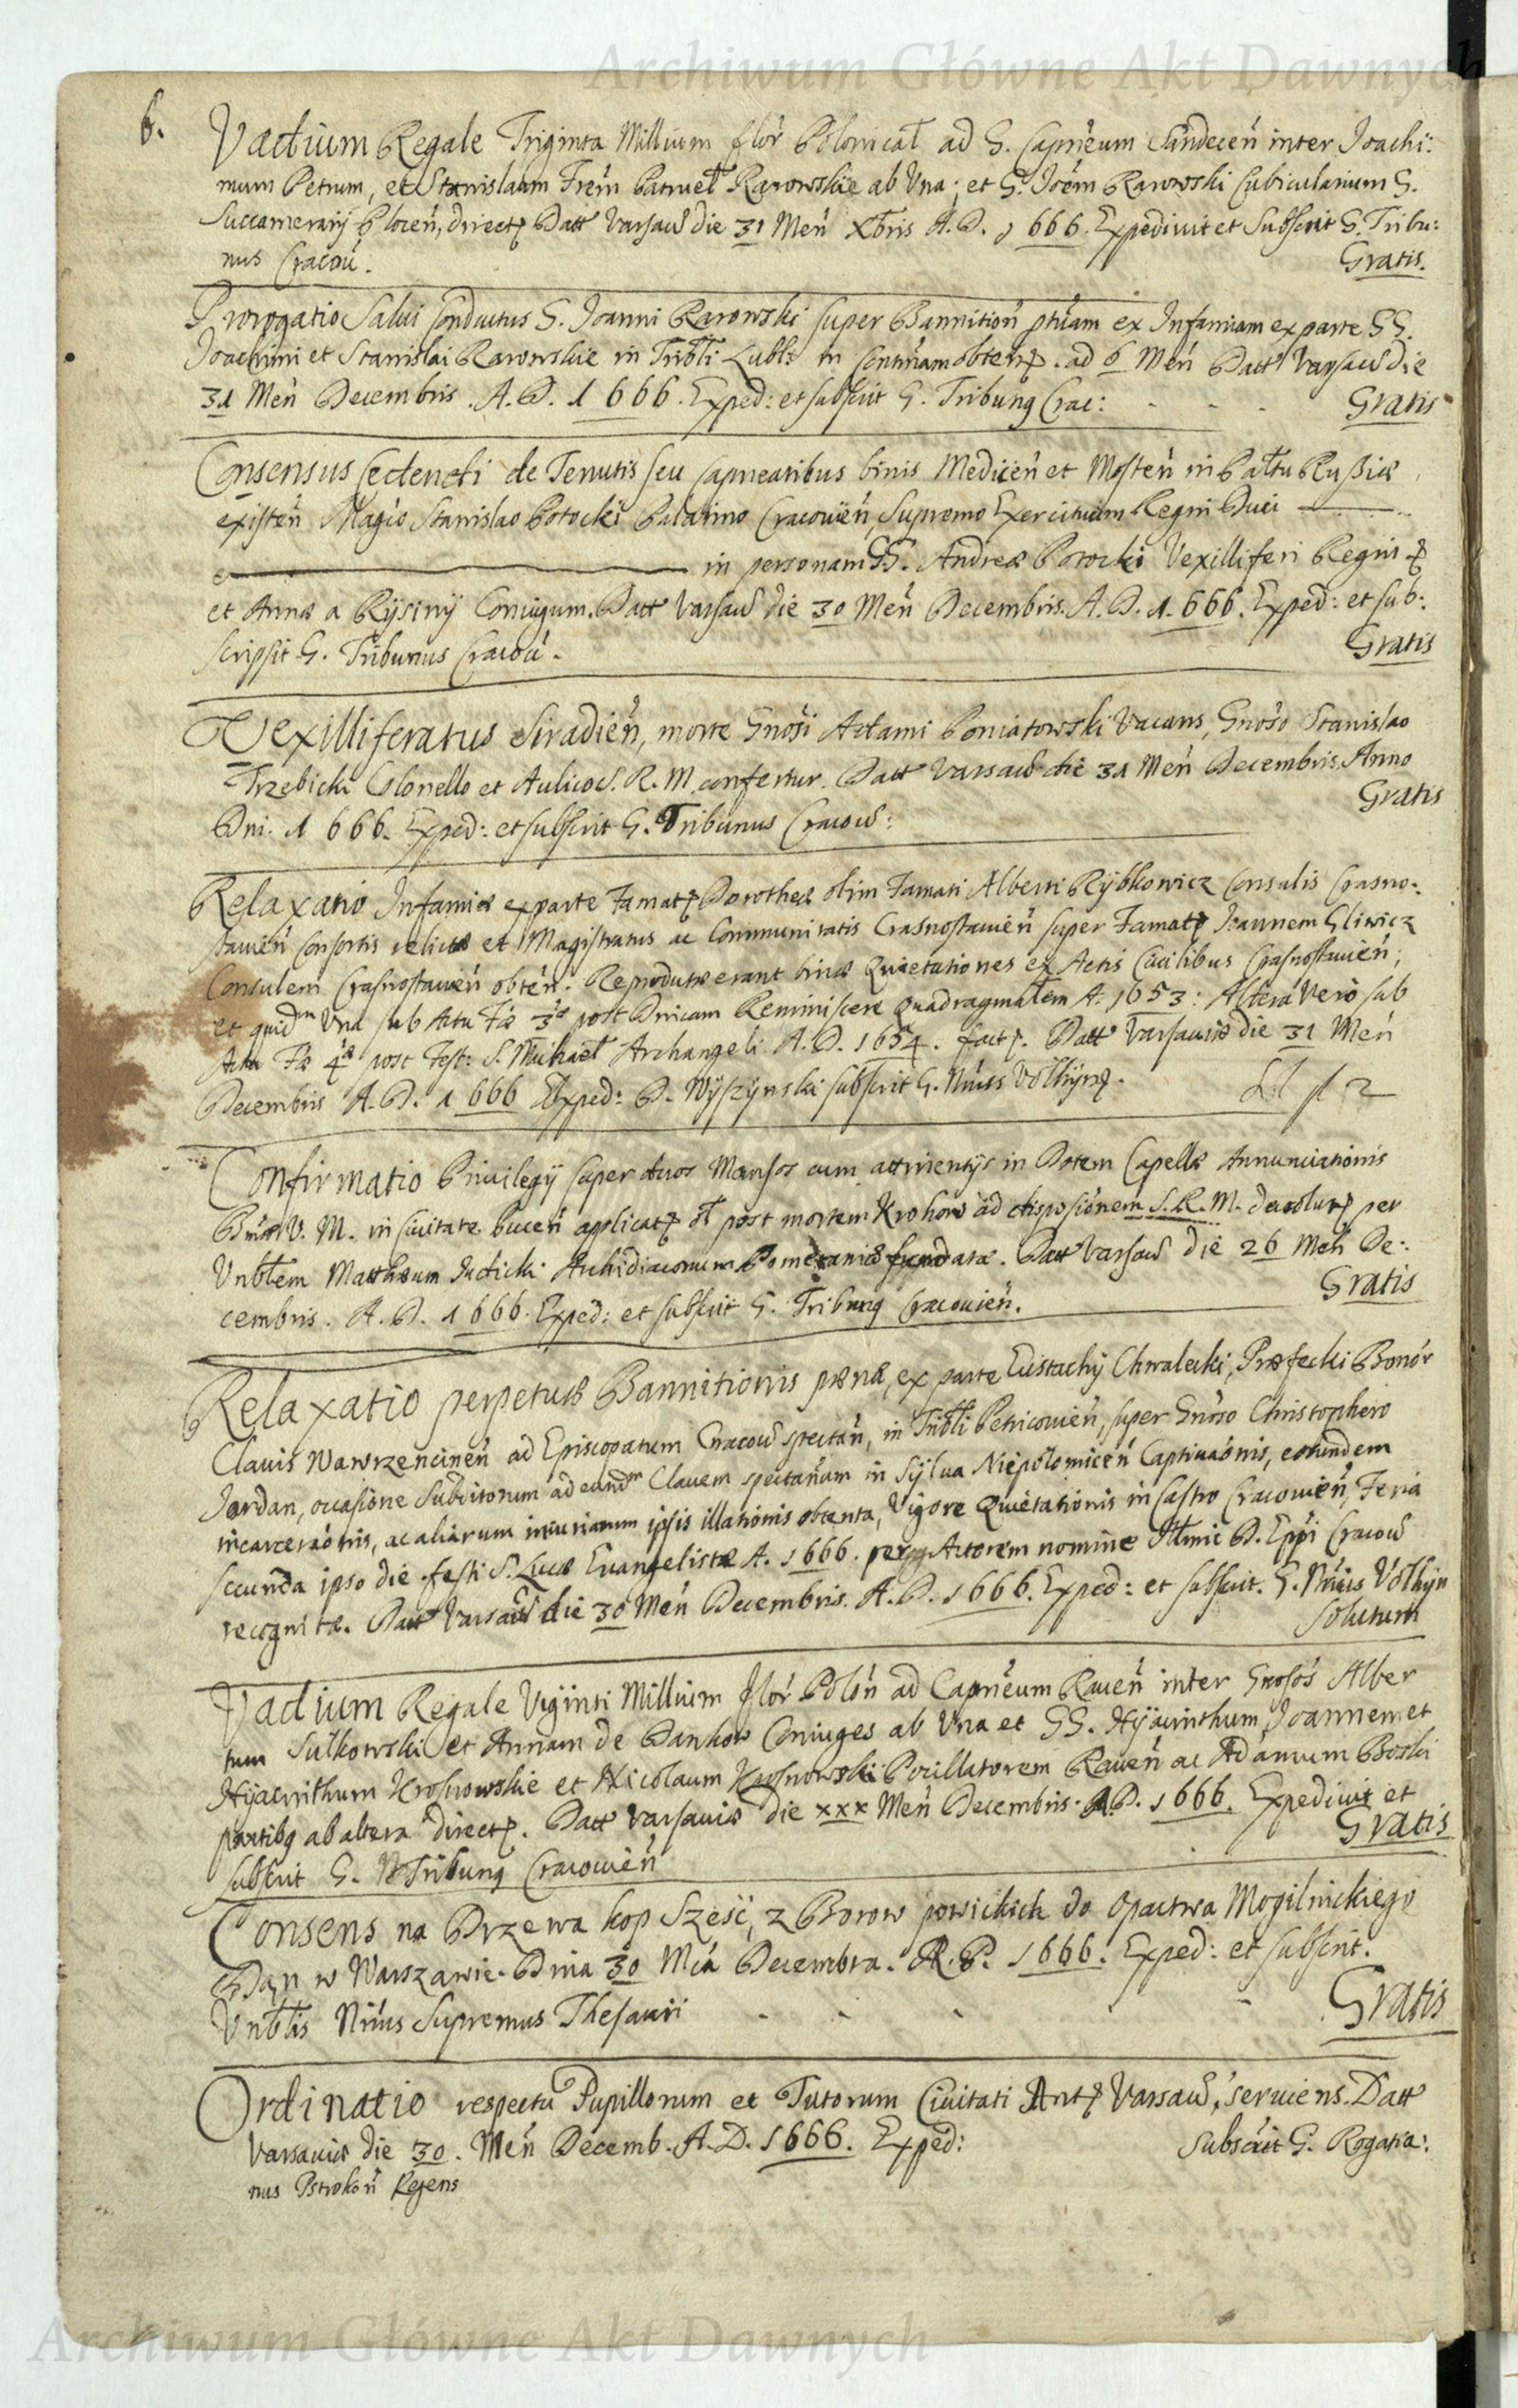 Archiwum Główne Akt Dawnych
6.
Vadium Regale Triginta Millium flor Polonical ad G. Capneum Sandecen inter Joachi:
mum Petrum, et Stanislaum Frem Patruel Rarowskie ab Una; et G. Joem Rarowski Cubicularium G.
Succamerarij Plocen, direct Datt Varsaw die 31 Men Xbris A. D. 1666. Expedivit et Subscrit G. Tribu:
nus Cracou.
Gratis.
Prorogatio Salui Conductus G. Joanni Rarowski super Bannition ptuam ex Infamiam ex parte GG.
Joachimi et Stanislai Rarowskie in Tribli Lubl in obten. ad 6 Men Datt Varsaw die
31 Men Decembris. A. D. 1666. Exped: et subscrit G. Tribunq Crac: - - -
Gratis
Consensus cedendi de Tenutis seu Capneatibus binis Medicen et Mosten in Pattu Russiæ
existen Magco Stanislao Potocki Palatino Cracouien, Supremo Exercituum Regni Duci
in personam GG. Andreæ Potocki Vexilliferi Regni
et Annæ a Rysiny Coniugum. Datt Varsaw die 30 Men Decembris. A. D. 1666. Exped: et sub:
scripsit G. Tribunus Cracou.
Gratis
Vexilliferatus Siradien, morte Gnosi Adami Poniatowski Vacans, Gnoso Stanislao
Trzebicki Colonello et Aulico S. R. M. confertur. Datt Varsaw die 31 Men Decembris. Anno
Dni. 1666. Exped: et subscrit G. Tribunus Cracow:
Gratis
Relaxatio Infamiæ ex parte Famat Dorotheæ olim Famati Alberti Rybkowicz Consulis Crasno:
stauien Consortis relictæ et Magistratus ac Communitatis Crasnostauien super Famat Joannem Gliwicz
Consulem Crasnostauien obten. Reproductæ erant binæ Quietationes ex Actis Ciuilibus Crasnostauien;
et quidm Una sub Actu Fæ 3æ post Dnicam Reminiscere Quadragmalem A: 1653: Altera Vero sub
Actu Fæ 4æ post Fest: S. Michael Archangeli A. D. 1654. fact. Datt Varsauiæ die 31 Men
Decembris A. D. 1666 Exped: D. Wyszynski subscrit G. Nuss Volhyn.
Confirmatio Priuilegij super duos Mansos cum attinentijs in Dotem Capellæ Annunciationis
Bmæ V. M. in ciuitate Pucen applicat post mortem Krokow ad disposionem S. R. M. deuolut per
Unblem Mattheum Judicki Archidiaconum Pomeraniæ fundatæ. Datt Varsaw die 26 Men De:
cembris. A. D. 1666. Exped: et subscrit G. Tribunq Cracouien.
Gratis
Relaxatio perpetuæ Bannitionis pænæ, ex parte Eustachij Chwalecki, Præfecki Bonor
Clauis Wawrzencinen ad Episcopatum Cracow spectan, in Tribli Petricouien, super Gnoso Christophero
Jordan, occasione Subditorum ad eandm Clauem spectanam in Sylua Niepolomicen Captiuaonis, eorundem
incarceraonis, ac aliarum iniuriarum ipsis illationis obtenta, Vigore Quietationis in Castro Cracouien, Feria
secunda ipso die festi S. Lucæ Euangelistæ A. 1666. per Actorem nomine Illmi D. Eppi Cracow
recognitæ. Datt Varsaw die 30 Men Decembris. A. D. 1666. Exped: et subscrit. G. Nuis Volhyn
Solutum
Vadium Regale Viginti Millium flor Polon ad Capneum Rauen inter Gnosos Alber
tum Sulkowski et Annam de Dankow Coniuges ab Una et GG. Hyacinthum, Joannem et
Hyacinthum Krosnowskie et Nicolaum Krosnowski Pocillatorem Rauen ac Adamum Boski
partibq ab altera direct. Datt Varsauiæ die xxx Men Decembris. A. D. 1666. Expediuit et
subscrit G. Tribunq Cracouien
Gratis
Consens na Drzewa kop Szesć, z Borow powickich do Opactwa Mogilnickiego
Dan w Warszawie. Dnia 30 Mca Decembra. R. P. 1666. Exped: et subscrit.
Unblis Nrius Supremus Thesauri - - - -
Gratis
Ordinatio respectu Pupillorum et Tutorum Ciuitati Ant Varsaw, seruiens. Datt
Varsauiæ die 30. Men Decemb. A. D. 1666. Exped: Subscrit G. Rogatia:
nus Pstrokon Regens
Archiwum Główne Akt Dawnych